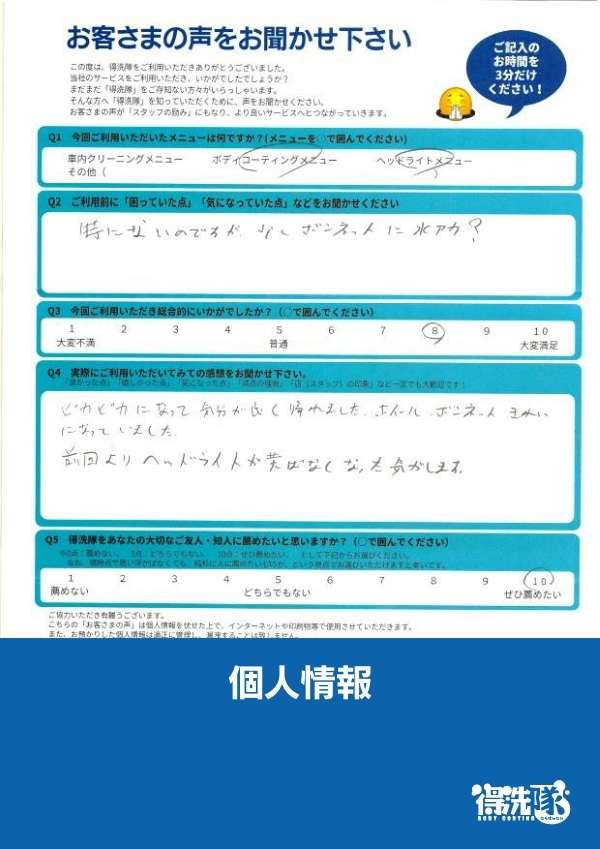 お客さまの声をお聞かせ下さい
ご記入の
お時間を
3分だけ
ください！
この度は、得洗隊をご利用いただきありがとうございました。
当社のサービスをご利用いただき、いかがでしたでしょうか？
まだまだ「得洗隊」をご存知ない方々がいらっしゃいます。
そんな方へ「得洗隊」を知っていただくために、声をお聞かせください。
お客さまの声が「スタッフの励み」にもなり、より良いサービスへとつながっていきます。
Q1 今回ご利用いただいたメニューは何ですか？(メニューを○で囲んでください)
車内クリーニングメニュー ボディコーティングメニュー ヘッドライトメニュー
その他（ ）
Q2 ご利用前に「困っていた点」「気になっていた点」などをお聞かせください
特にないのですが、少しボンネットに水アカ？
Q3 今回ご利用いただき総合的にいかがでしたか？（○で囲んでください）
1 2 3 4 5 6 7 8 9 10
大変不満 普通 大変満足
Q4 実際にご利用いただいてみての感想をお聞かせ下さい。
「良かった点」「嬉しかった点」「気になった点」「減点の理由」「店（スタッフ）の印象」など一言でも大歓迎です！
ピカピカになって気分が良く帰れました。ホイール、ボンネットきれい
になっていました。
前回よりヘッドライトが黄ばなくなった気がします。
Q5 得洗隊をあなたの大切なご友人・知人に薦めたいと思いますか？（○で囲んでください）
※0点：薦めない、 5点：どちらでもない、 10点：ぜひ薦めたい、 として下記からお選びください。
1 2 3 4 5 6 7 8 9 10
薦めない どちらでもない ぜひ薦めたい
ご協力いただき有難うございます。
こちらの「お客さまの声」は個人情報を伏せた上で、インターネットや印刷物等で使用させていただきます。
また、お預かりした個人情報は適正に管理し、漏洩することは致しません。
個人情報
得洗隊
BODY COATING